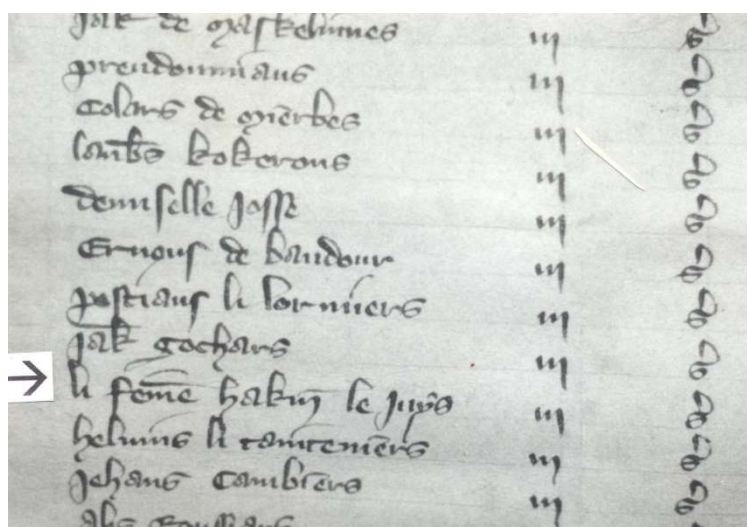 Jak de maskelinnes iij s
preudoumiaus iij s
Colars de mierbes iij s
lambs kokerons iij s
demiselle Josse iij s
Ernous de baudour iij s
postiaus li lormiers iij s
Jak cochars iij s
li feme hakin le Juys iij s
helinus li contemiers iij s
Jehans Cambiers iij s
alis